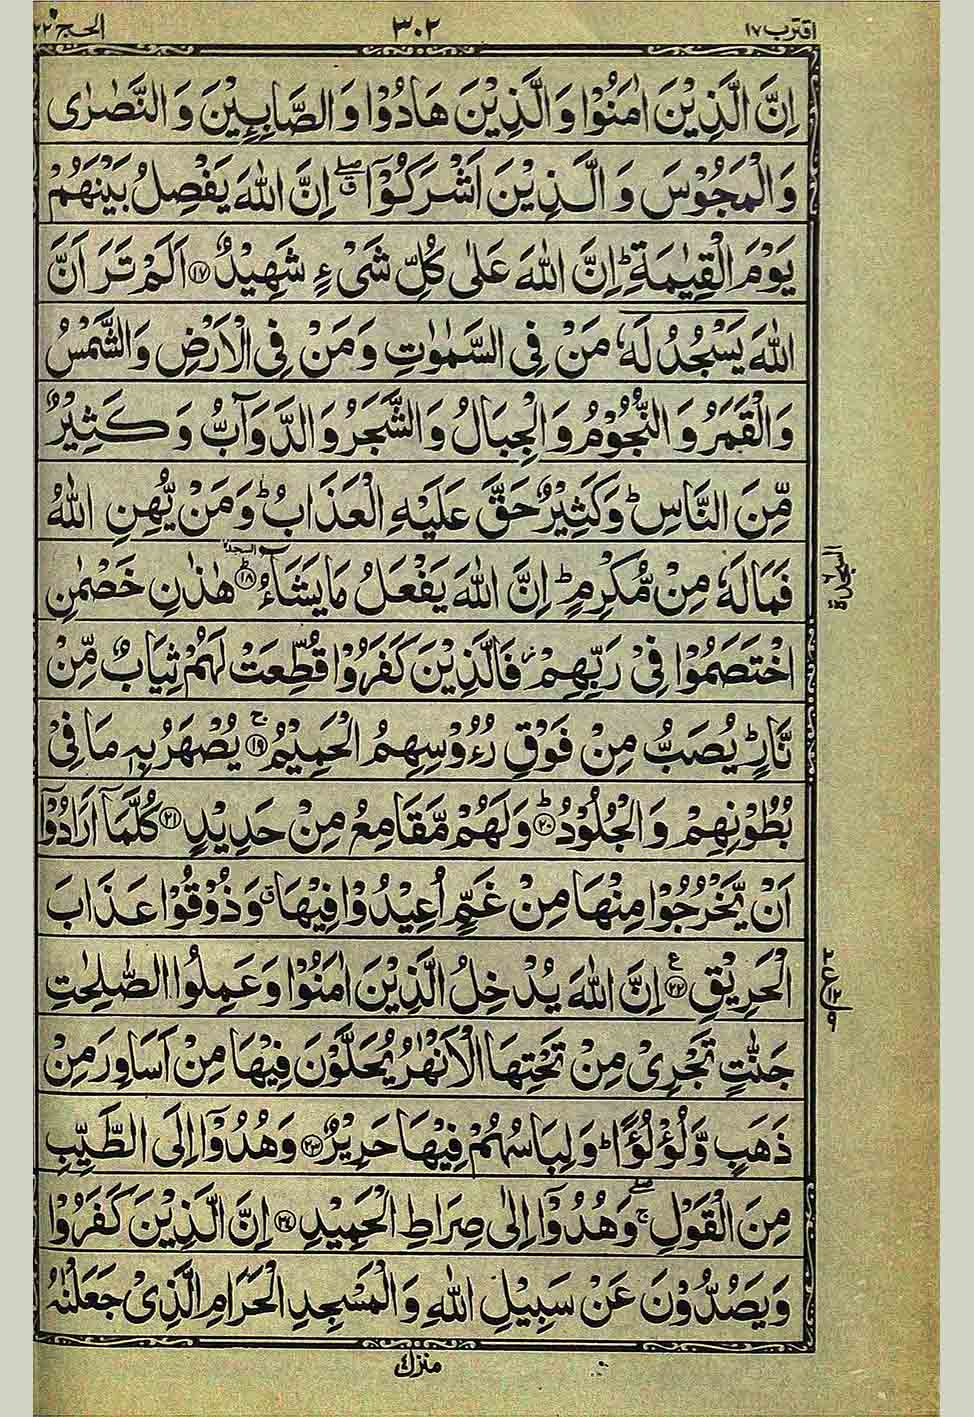 اقترب ١٧ ٣٠٢ الحج ٢٢
اِنَّ الَّذِيْنَ اٰمَنُوْا وَ الَّذِيْنَ هَادُوْا وَ الصَّابِـِٕيْنَ وَ النَّصٰرٰى
وَ الْمَجُوْسَ وَ الَّذِيْنَ اَشْرَكُوْۤا ۖق اِنَّ اللّٰهَ يَفْصِلُ بَيْنَهُمْ
يَوْمَ الْقِيٰمَةِ ؕ اِنَّ اللّٰهَ عَلٰى كُلِّ شَیْءٍ شَهِيْدٌ ﴿١٧﴾ اَلَمْ تَرَ اَنَّ
اللّٰهَ يَسْجُدُ لَهٗ مَنْ فِى السَّمٰوٰتِ وَ مَنْ فِى الْاَرْضِ وَ الشَّمْسُ
وَ الْقَمَرُ وَ النُّجُوْمُ وَ الْجِبَالُ وَ الشَّجَرُ وَ الدَّوَآبُّ وَ كَثِيْرٌ
مِّنَ النَّاسِ ؕ وَ كَثِيْرٌ حَقَّ عَلَيْهِ الْعَذَابُ ؕ وَ مَنْ يُّهِنِ اللّٰهُ
فَمَا لَهٗ مِنْ مُّكْرِمٍ ؕ اِنَّ اللّٰهَ يَفْعَلُ مَا يَشَآءُ ﴿١٨﴾ؕ السجدة هٰذٰنِ خَصْمٰنِ
السجدة ٦
اخْتَصَمُوْا فِیْ رَبِّهِمْ ز فَالَّذِيْنَ كَفَرُوْا قُطِّعَتْ لَهُمْ ثِيَابٌ مِّنْ
نَّارٍ ؕ يُصَبُّ مِنْ فَوْقِ رُءُوْسِهِمُ الْحَمِيْمُ ﴿١٩﴾ۚ يُصْهَرُ بِهٖ مَا فِیْ
بُطُوْنِهِمْ وَ الْجُلُوْدُ ﴿٢٠﴾ؕ وَ لَهُمْ مَّقَامِعُ مِنْ حَدِيْدٍ ﴿٢١﴾ كُلَّمَاۤ اَرَادُوْۤا
اَنْ يَّخْرُجُوْا مِنْهَا مِنْ غَمٍّ اُعِيْدُوْا فِيْهَا ق وَ ذُوْقُوْا عَذَابَ
الْحَرِيْقِ ﴿٢٢﴾ع اِنَّ اللّٰهَ يُدْخِلُ الَّذِيْنَ اٰمَنُوْا وَ عَمِلُوا الصّٰلِحٰتِ
٢ ع ١٢ ٩
جَنّٰتٍ تَجْرِیْ مِنْ تَحْتِهَا الْاَنْهٰرُ يُحَلَّوْنَ فِيْهَا مِنْ اَسَاوِرَ مِنْ
ذَهَبٍ وَّ لُؤْلُؤًا ؕ وَ لِبَاسُهُمْ فِيْهَا حَرِيْرٌ ﴿٢٣﴾ وَ هُدُوْۤا اِلَى الطَّيِّبِ
مِنَ الْقَوْلِ ۖۚ وَ هُدُوْۤا اِلٰى صِرَاطِ الْحَمِيْدِ ﴿٢٤﴾ اِنَّ الَّذِيْنَ كَفَرُوْا
وَ يَصُدُّوْنَ عَنْ سَبِيْلِ اللّٰهِ وَ الْمَسْجِدِ الْحَرَامِ الَّذِیْ جَعَلْنٰهُ
منزل ٤